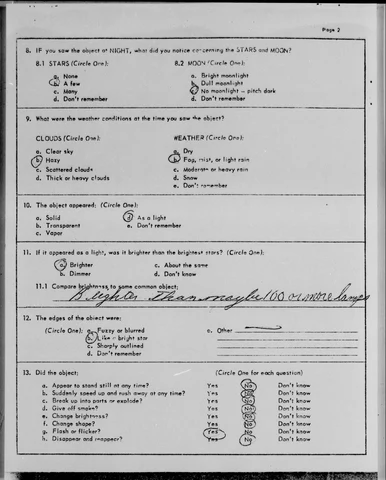 Page 2
8. IF you saw the object at NIGHT, what did you notice concerning the STARS and MOON?
8.1 STARS (Circle One): 8.2 MOON (Circle One):
a. None a. Bright moonlight
b. A few b. Dull moonlight
c. Many c. No moonlight – pitch dark
d. Don't remember d. Don't remember
9. What were the weather conditions at the time you saw the object?
CLOUDS (Circle One): WEATHER (Circle One):
a. Clear sky a. Dry
b. Hazy b. Fog, mist, or light rain
c. Scattered clouds c. Moderate or heavy rain
d. Thick or heavy clouds d. Snow
e. Don't remember
10. The object appeared: (Circle One):
a. Solid d. As a light
b. Transparent e. Don't remember
c. Vapor
11. If it appeared as a light, was it brighter than the brightest stars? (Circle One):
a. Brighter c. About the same
b. Dimmer d. Don't know
11.1 Compare brightness to some common object:
Brighter than maybe 100 or more lamps
12. The edges of the object were:
(Circle One): a. Fuzzy or blurred e. Other
b. Like a bright star
c. Sharply outlined
d. Don't remember
13. Did the object: (Circle One for each question)
a. Appear to stand still at any time? Yes No Don't know
b. Suddenly speed up and rush away at any time? Yes No Don't know
c. Break up into parts or explode? Yes No Don't know
d. Give off smoke? Yes No Don't know
e. Change brightness? Yes No Don't know
f. Change shape? Yes No Don't know
g. Flash or flicker? Yes No Don't know
h. Disappear and reappear? Yes No Don't know